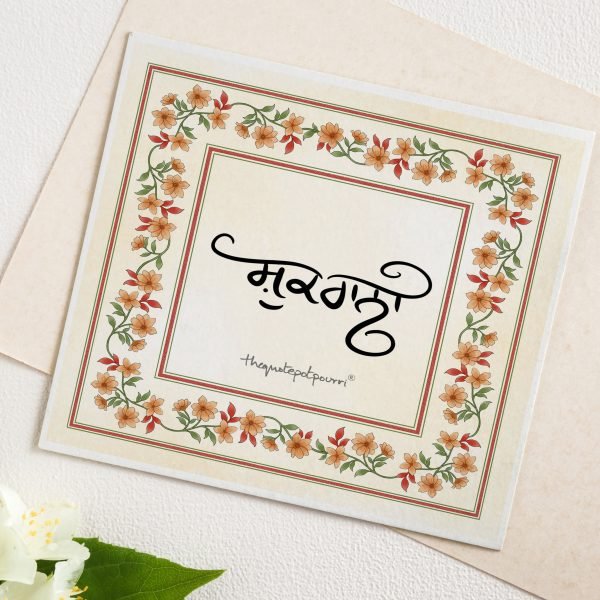 ਸ਼ੁਕਰਾਨਾ
thequotepotpourri®